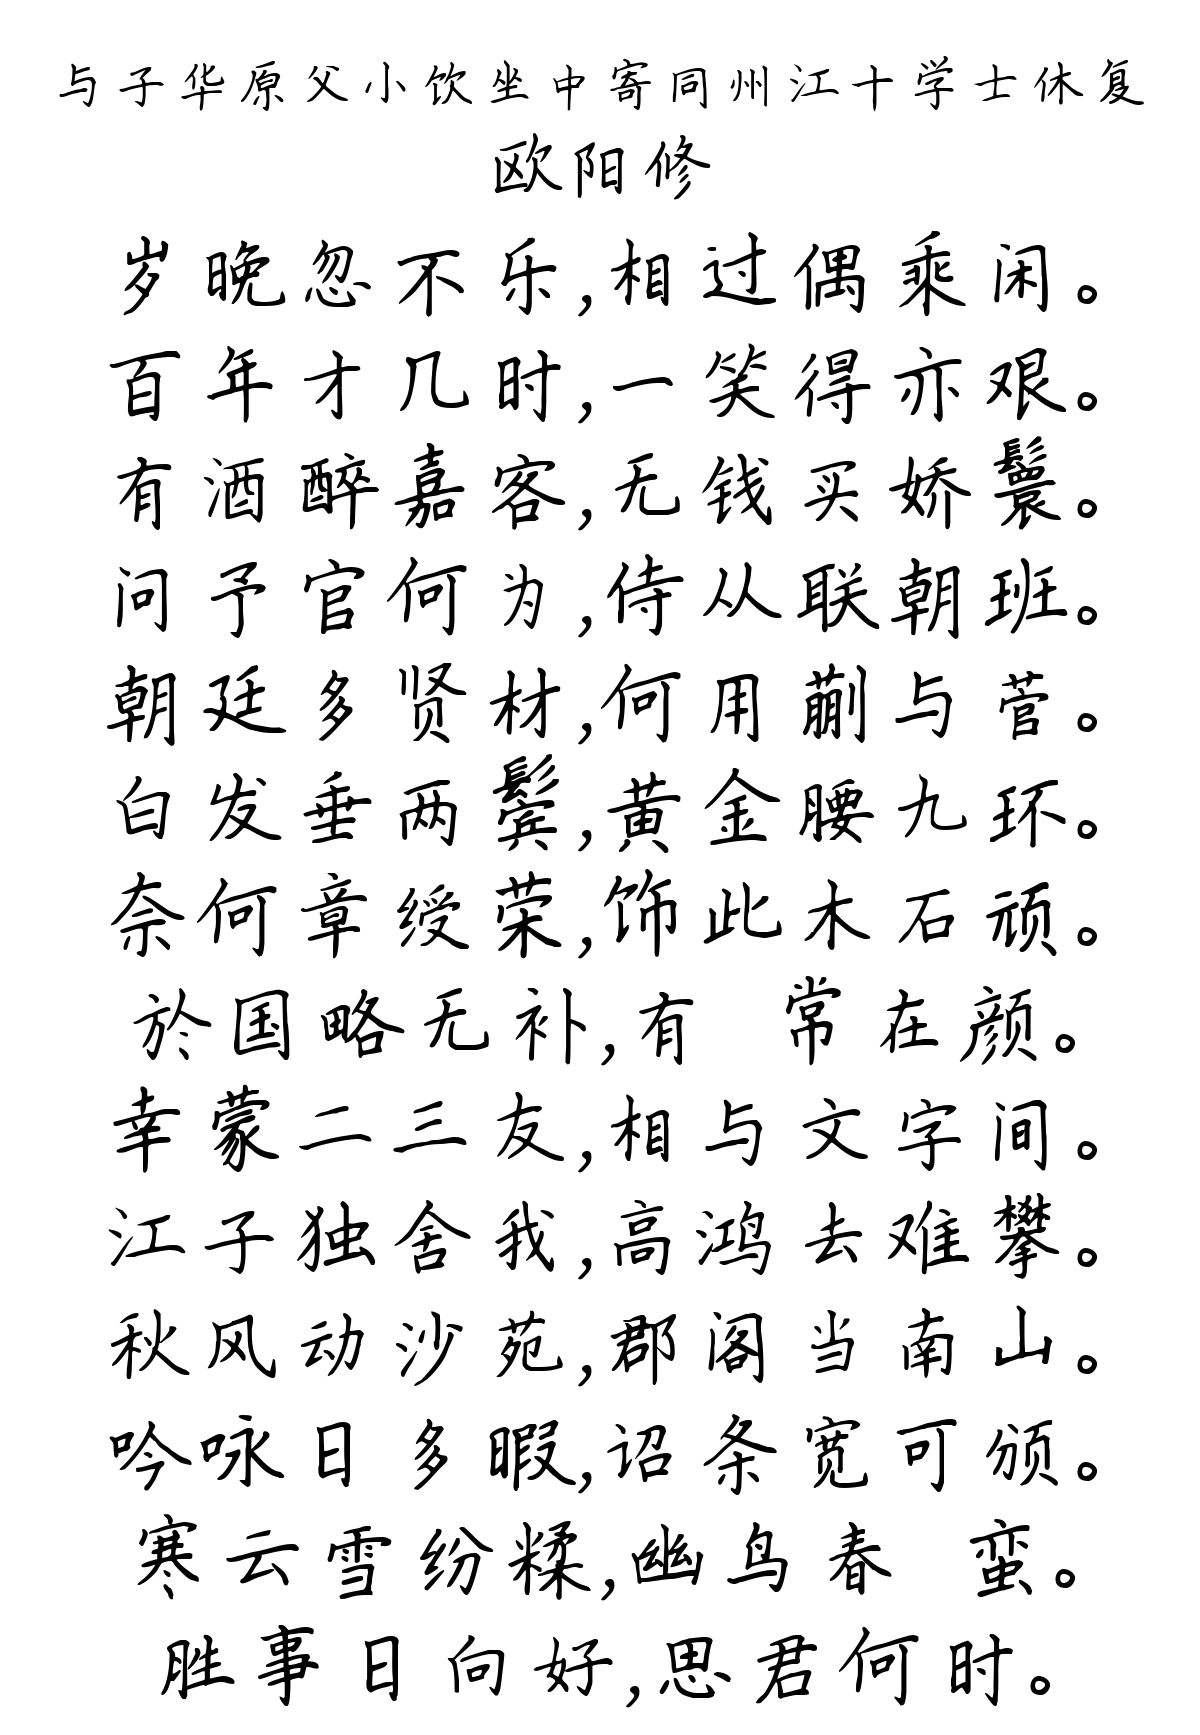 与子华原父小饮坐中寄同州江十学士休复
欧阳修
岁晚忽不乐,相过偶乘闲。
百年才几时,一笑得亦艰。
有酒醉嘉客,无钱买娇鬟。
问予官何为,侍从联朝班。
朝廷多贤材,何用蒯与菅。
白发垂两鬓,黄金腰九环。
奈何章绶荣,饰此木石顽。
於国略无补,有 常在颜。
幸蒙二三友,相与文字间。
江子独舍我,高鸿去难攀。
秋风动沙苑,郡阁当南山。
吟咏日多暇,诏条宽可颁。
寒云雪纷糅,幽鸟春 蛮。
胜事日向好,思君何时。